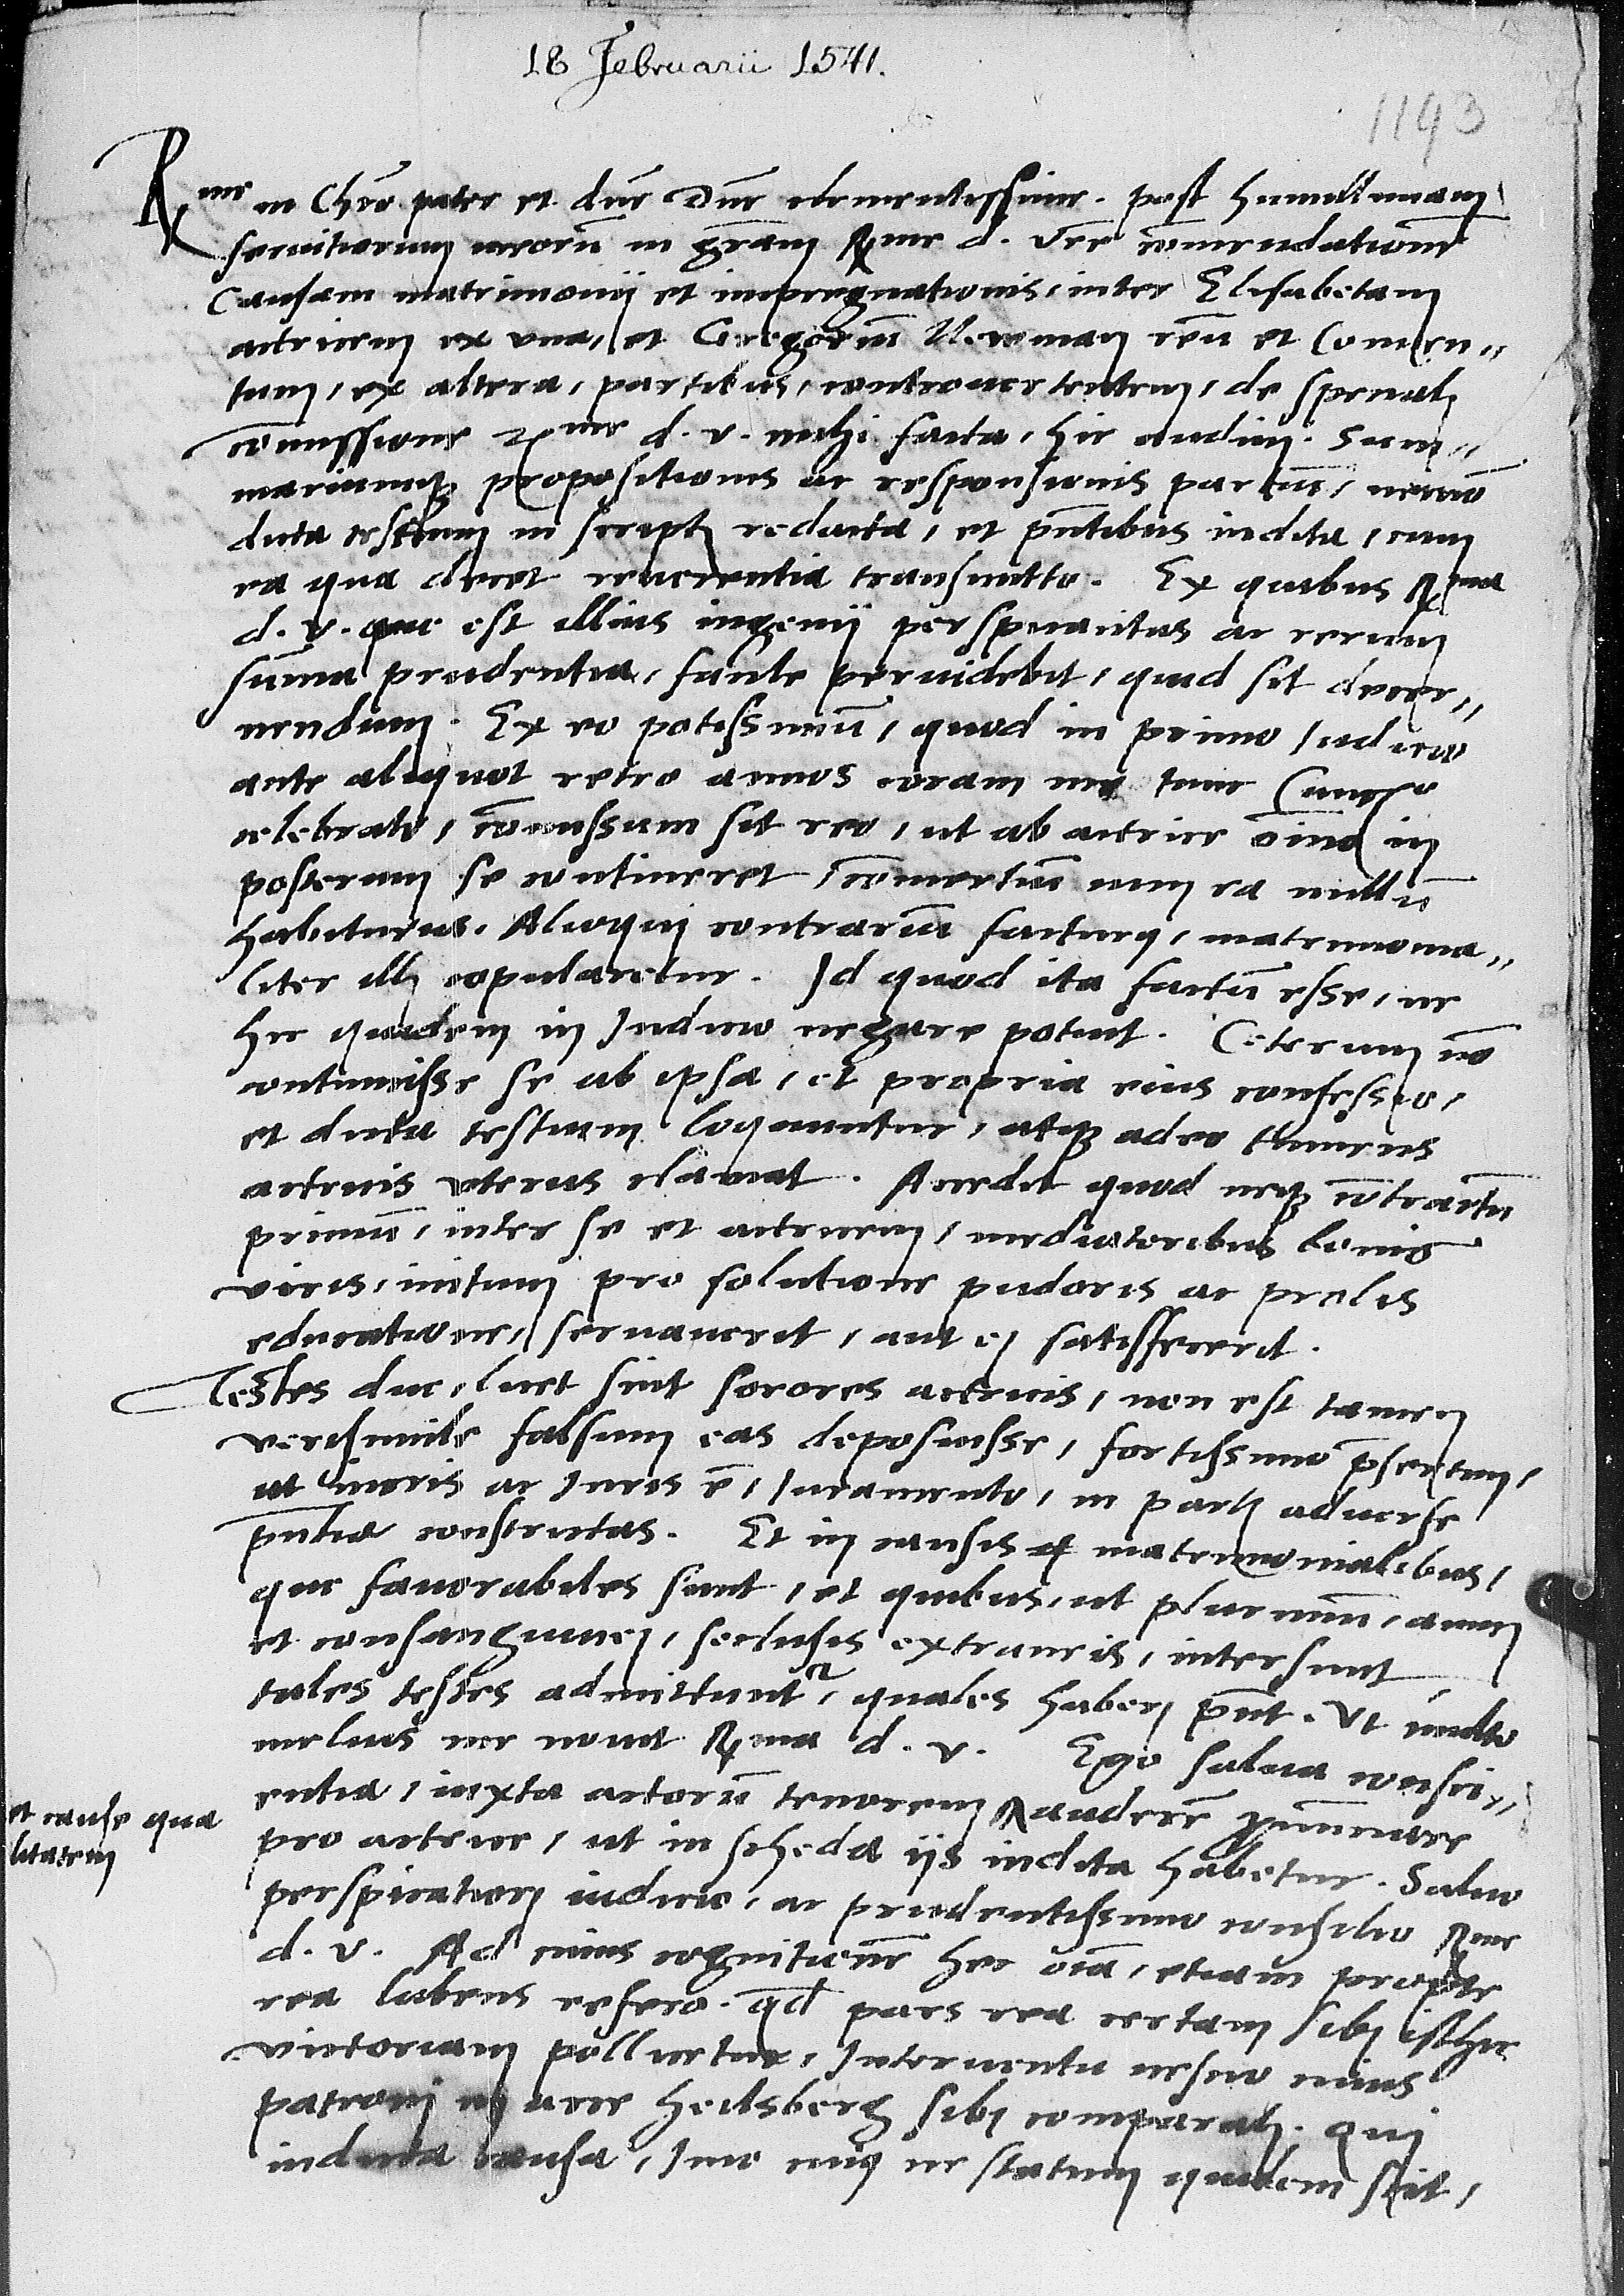 18 Februarii 1541.
1193
R me in Chro pater et dne Dne clementissime. post humillimam
seruitiorum meorum in gratiam R me d. vre comendationem
Causam matrimonij et impregnationis, inter Elisabetam
actricem ex vna, et Gregorium Newman reum et Conuen„
tum, ex altera, partibus, controuertentem, de speciali
comissione R me d. v. mihi facta, hic audiui. Sum„
mariumq propositionis ac responsionis partium, necno
dicta testium in scriptis redacta, et pntibus indita, cum
ea qua decet reuerentia transmitto. Ex quibus R ma
d. v. que est illius ingenij perspicacitas ac rerum
suma prudentia, facile peruidebit, quid sit decer„
nendum. Ex eo potissimum, quod in primo iudicio
ante aliquot retro annos coram me tunc
celebrato, comissum sit reo, ut ab actrice omnino in
posterum se contineret, comertium cum ea nullu
habiturus. Alioqui contrarium facturus, matrimonia„
liter illi copularetur. Id quod ita factu esse, ne
hic quidem in Iudicio negare potuit. Ceterum no
continuisse se ab ipsa, et propria eius confessio,
et dicta testium loquuntur, atq adeo tumens
actricis vterus clamat. Accedit quod neq contractu
primum, inter se et actricem, mediatoribus bonis
viris, initum pro solutione pudoris ac prolis
educatione, seruauerit, aut ei satisfecerit.
Testes due, licet sint sorores actricis, non est tamen
verisimile falsum eas deposuisse, fortissimo psertim,
ut moris ac Iuris e, Iuramento, in partis aduerse
pntia constrictas. Et in causis matrimonialibus,
que fauorabiles sunt, et quibus, ut plurimum, amici
et consanguinei, seclusis extraneis, intersunt
tales testes admittuntur, quales haberi pnt. Vt multo
melius me nouit R ma d. v. Ego salua consci„
entia, iuxta actorum tenorem auderem
et cause qua
litatem
pro actrice, ut in scheda ijs indita habetur. Saluo
perspicatiori iudicio, ac prudentissimo consilio R me
d. v. Ad cuius cognitione hec oia, etiam propte
rea lubens refero. qd pars rea certam sibi isthic
victoriam pollicetur, Interuentu nescio cuius
patroni in arce Heilsberg sibi comparati. Qui
indicta causa, Imo cuius ne statum quidem scit,